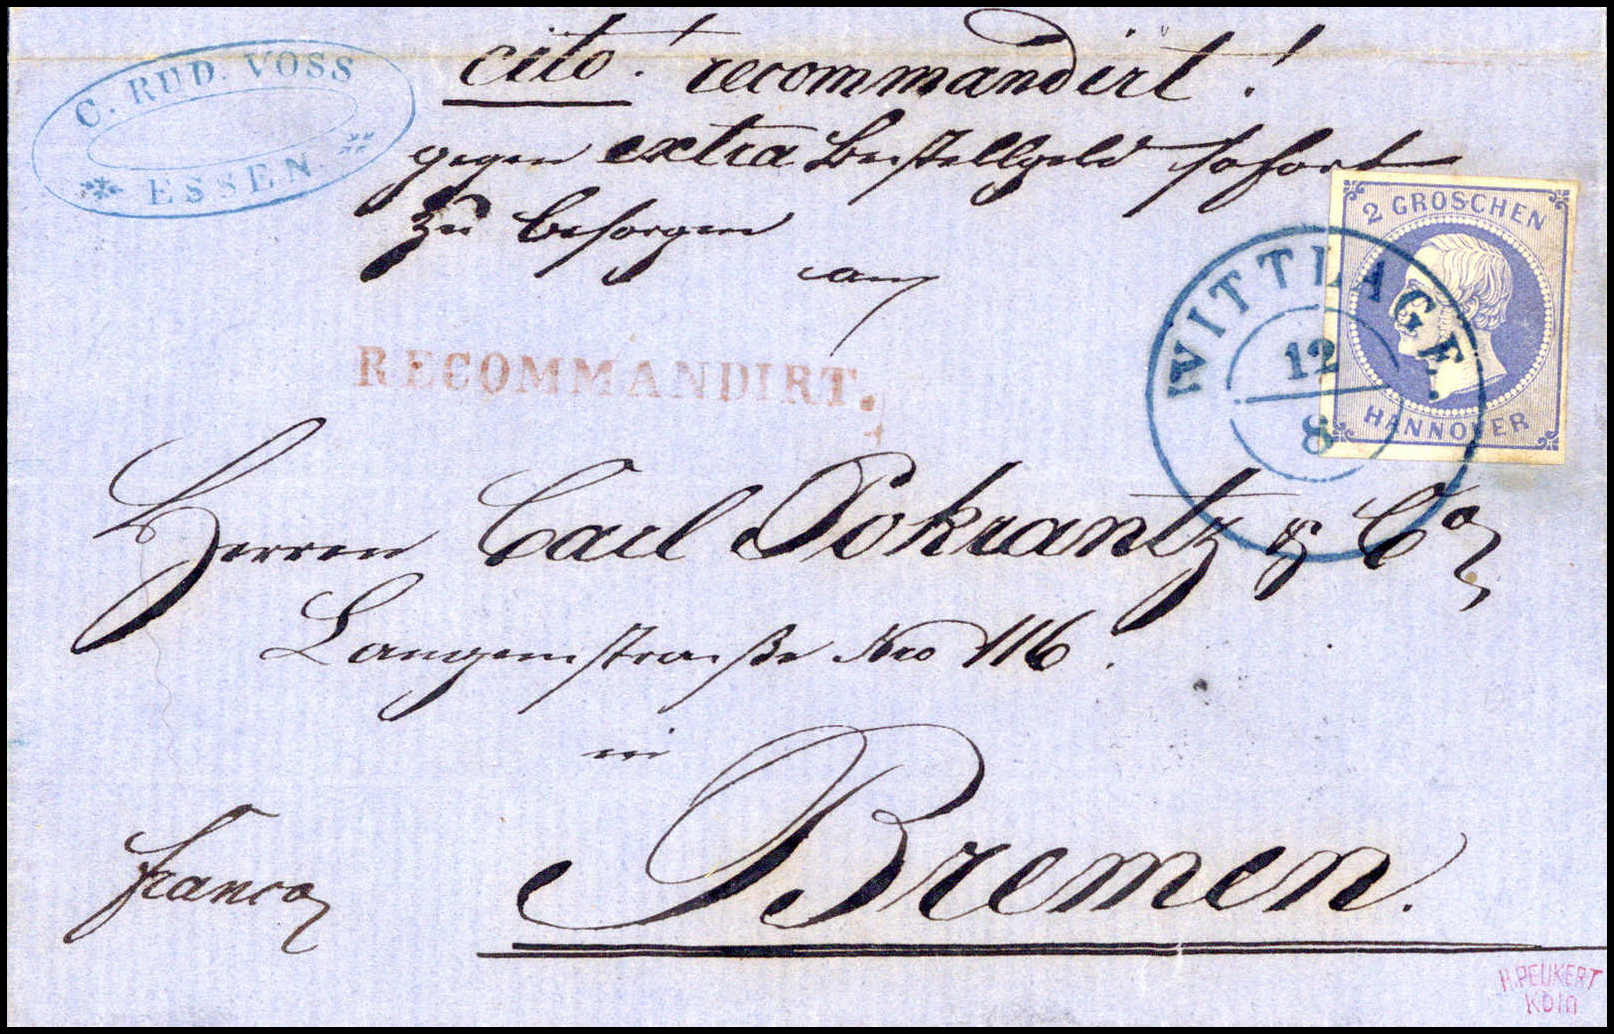 C. RUD. VOSS
ESSEN
cito! recommandirt!
gegen extra Bestellgeld sofort
zu besorgen
an
2 GROSCHEN
HANNOVER
WITTLAGE.
12
8
RECOMMANDIRT.
Herren Carl Pokrantz & Co
Langenstraße Nro 116.
in
Bremen.
franco
H. PEUKERT
KÖln